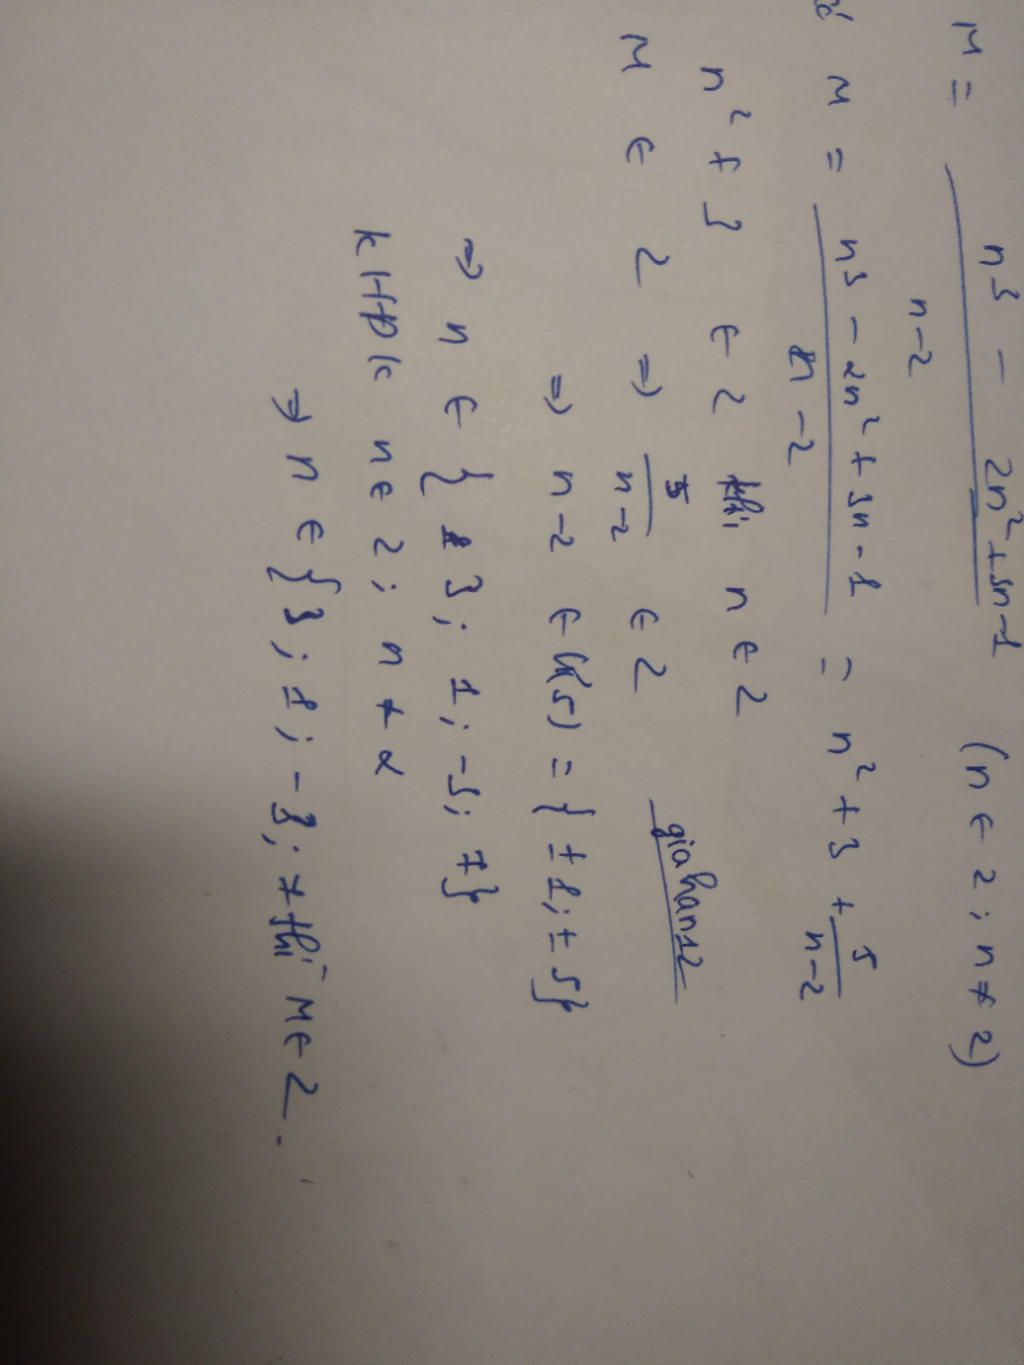 M = n3 - 2n² + 3n - 1 / n - 2 (n ∈ Z ; n ≠ 2)
M = n3 - 2n² + 3n - 1 / n - 2 = n² + 3 + 5 / n - 2
n² + 3 ∈ Z thì n ∈ Z
M ∈ Z ⇒ 5 / n - 2 ∈ Z giahans2
⇒ n - 2 ∈ Ư(5) = { ± 1 ; ± 5 }
⇒ n ∈ { 3 ; 1 ; -3 ; 7 }
KHĐK n ∈ Z ; n ≠ 2
⇒ n ∈ { 3 ; 1 ; -3 ; 7 thì M ∈ Z .